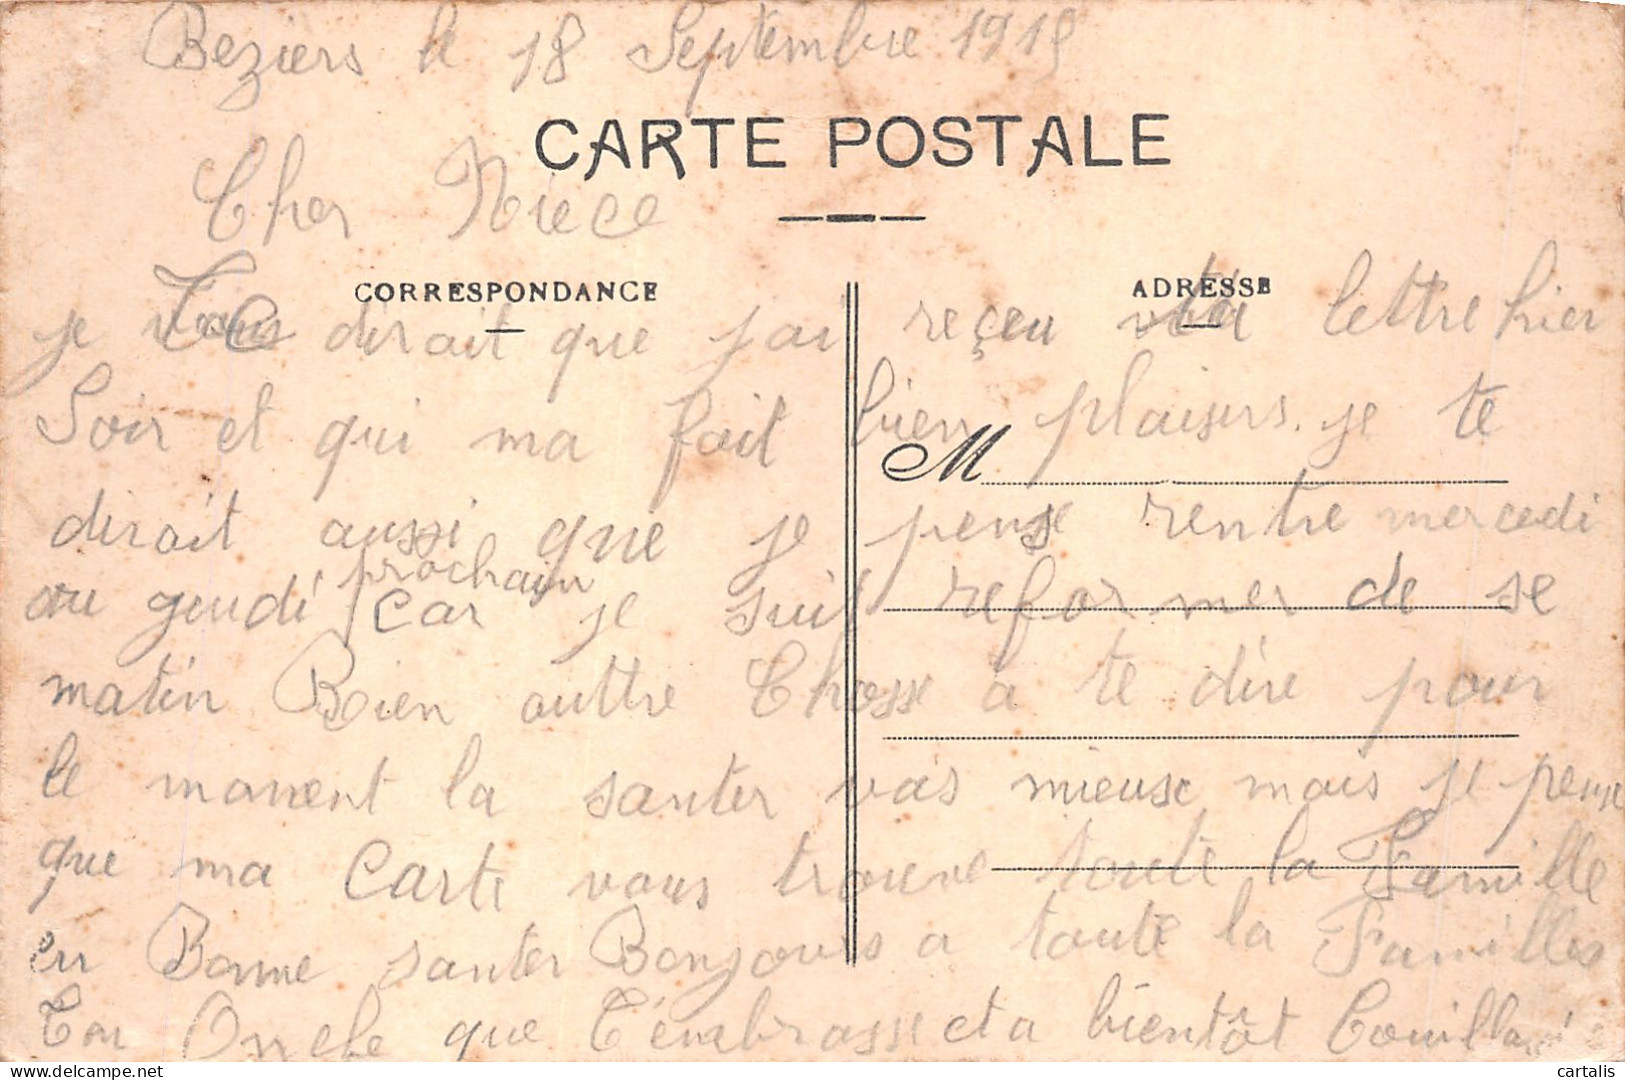 Beziers le 18 Septembre 1915
CARTE POSTALE
Cher Niece
CORRESPONDANCE
ADRESSE
je Te dirait que jai reçeu ta lettre hier
Soir et qui ma fait bien plaisirs. je te
M
dirait aussi que je pense rentre mercedi
prochain
ou geudi car je suit reformer de se
matin Bien outtre Chosse a te dire pour
le monent la santer vas mieuse mais je pense
que ma Carte vous trouve toute la Famille
en Bonne santer Bonjours a toute la Familles
Ton Oncle que T'embrasse et a bientôt
cartalis